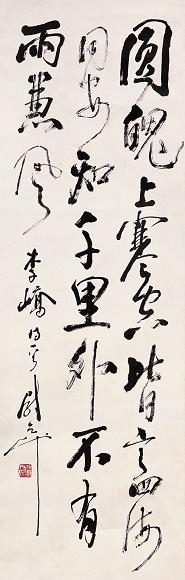 圆魄上寒空皆言四海
同安知千里外不有
雨兼风
李峤诗一首